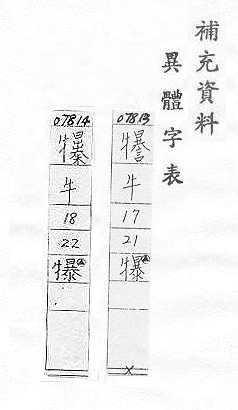 補充資料
異體字表
07813
牛
17
21
犦
×
07814
牛
18
22
犦